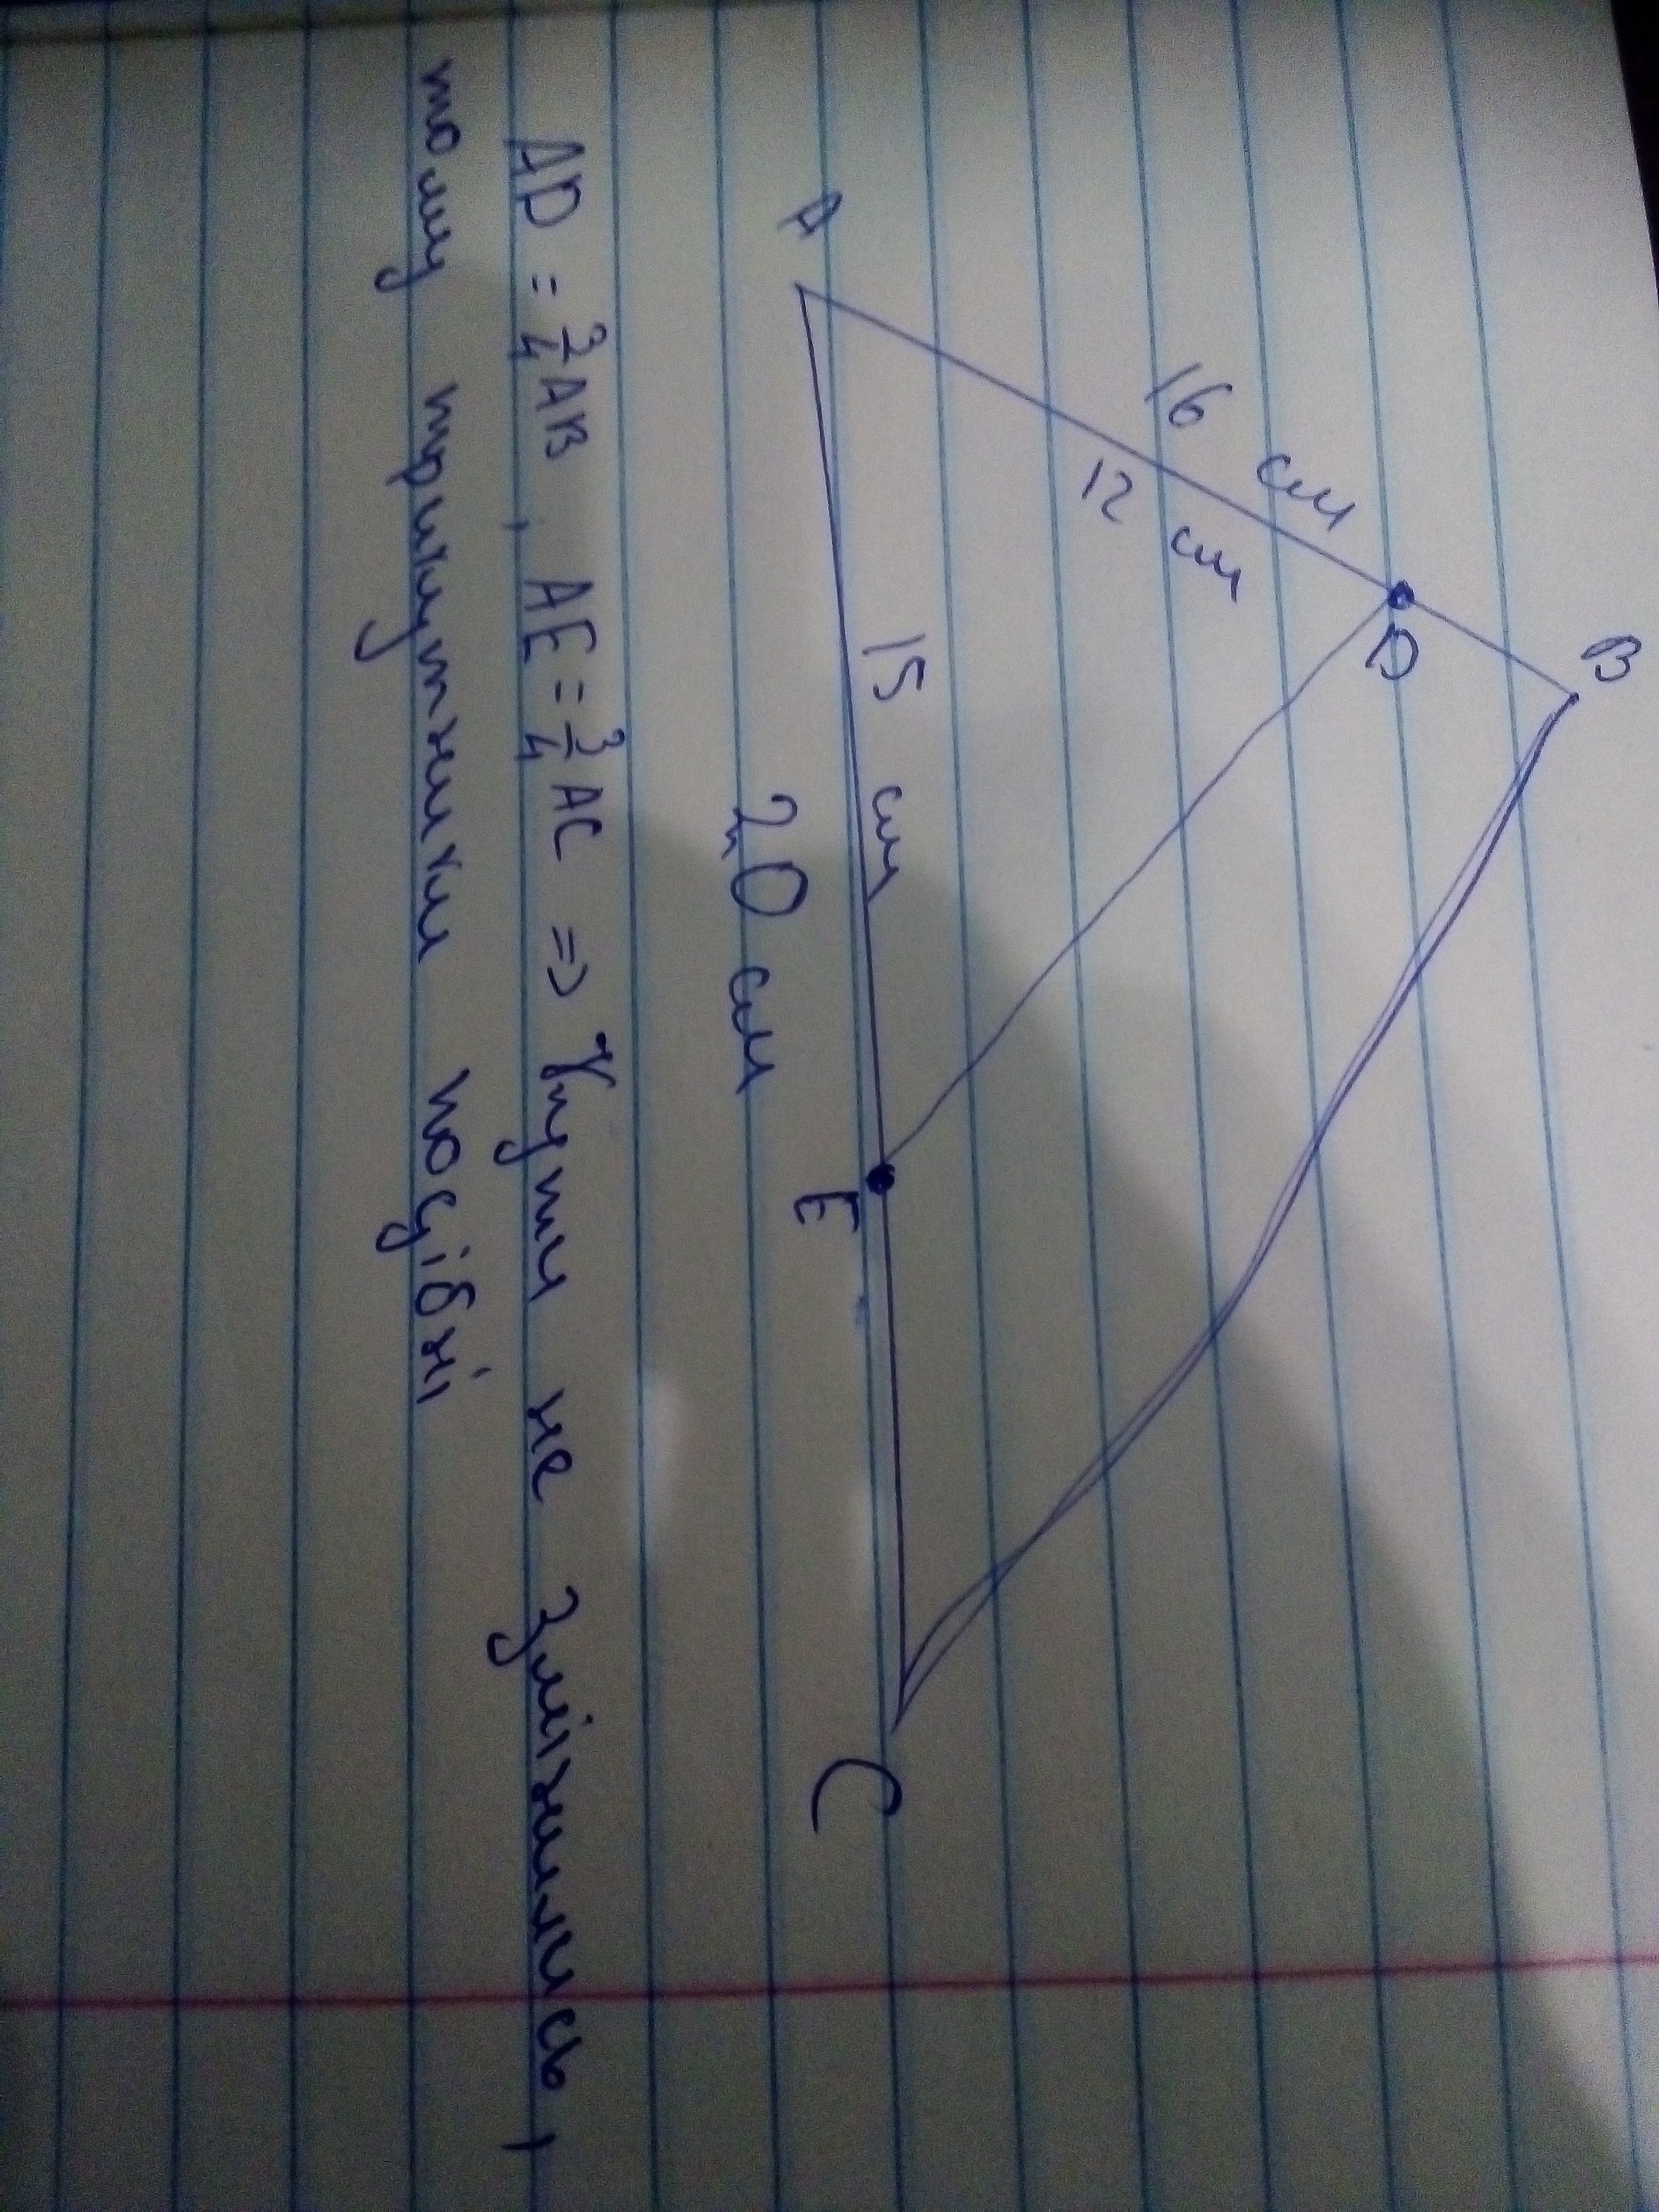 B
16 см
D
12 см
A
15 см
E
C
20 см
AD = 3/4 AB , AE = 3/4 AC => Кути не змінились,
тому трикутники подібні